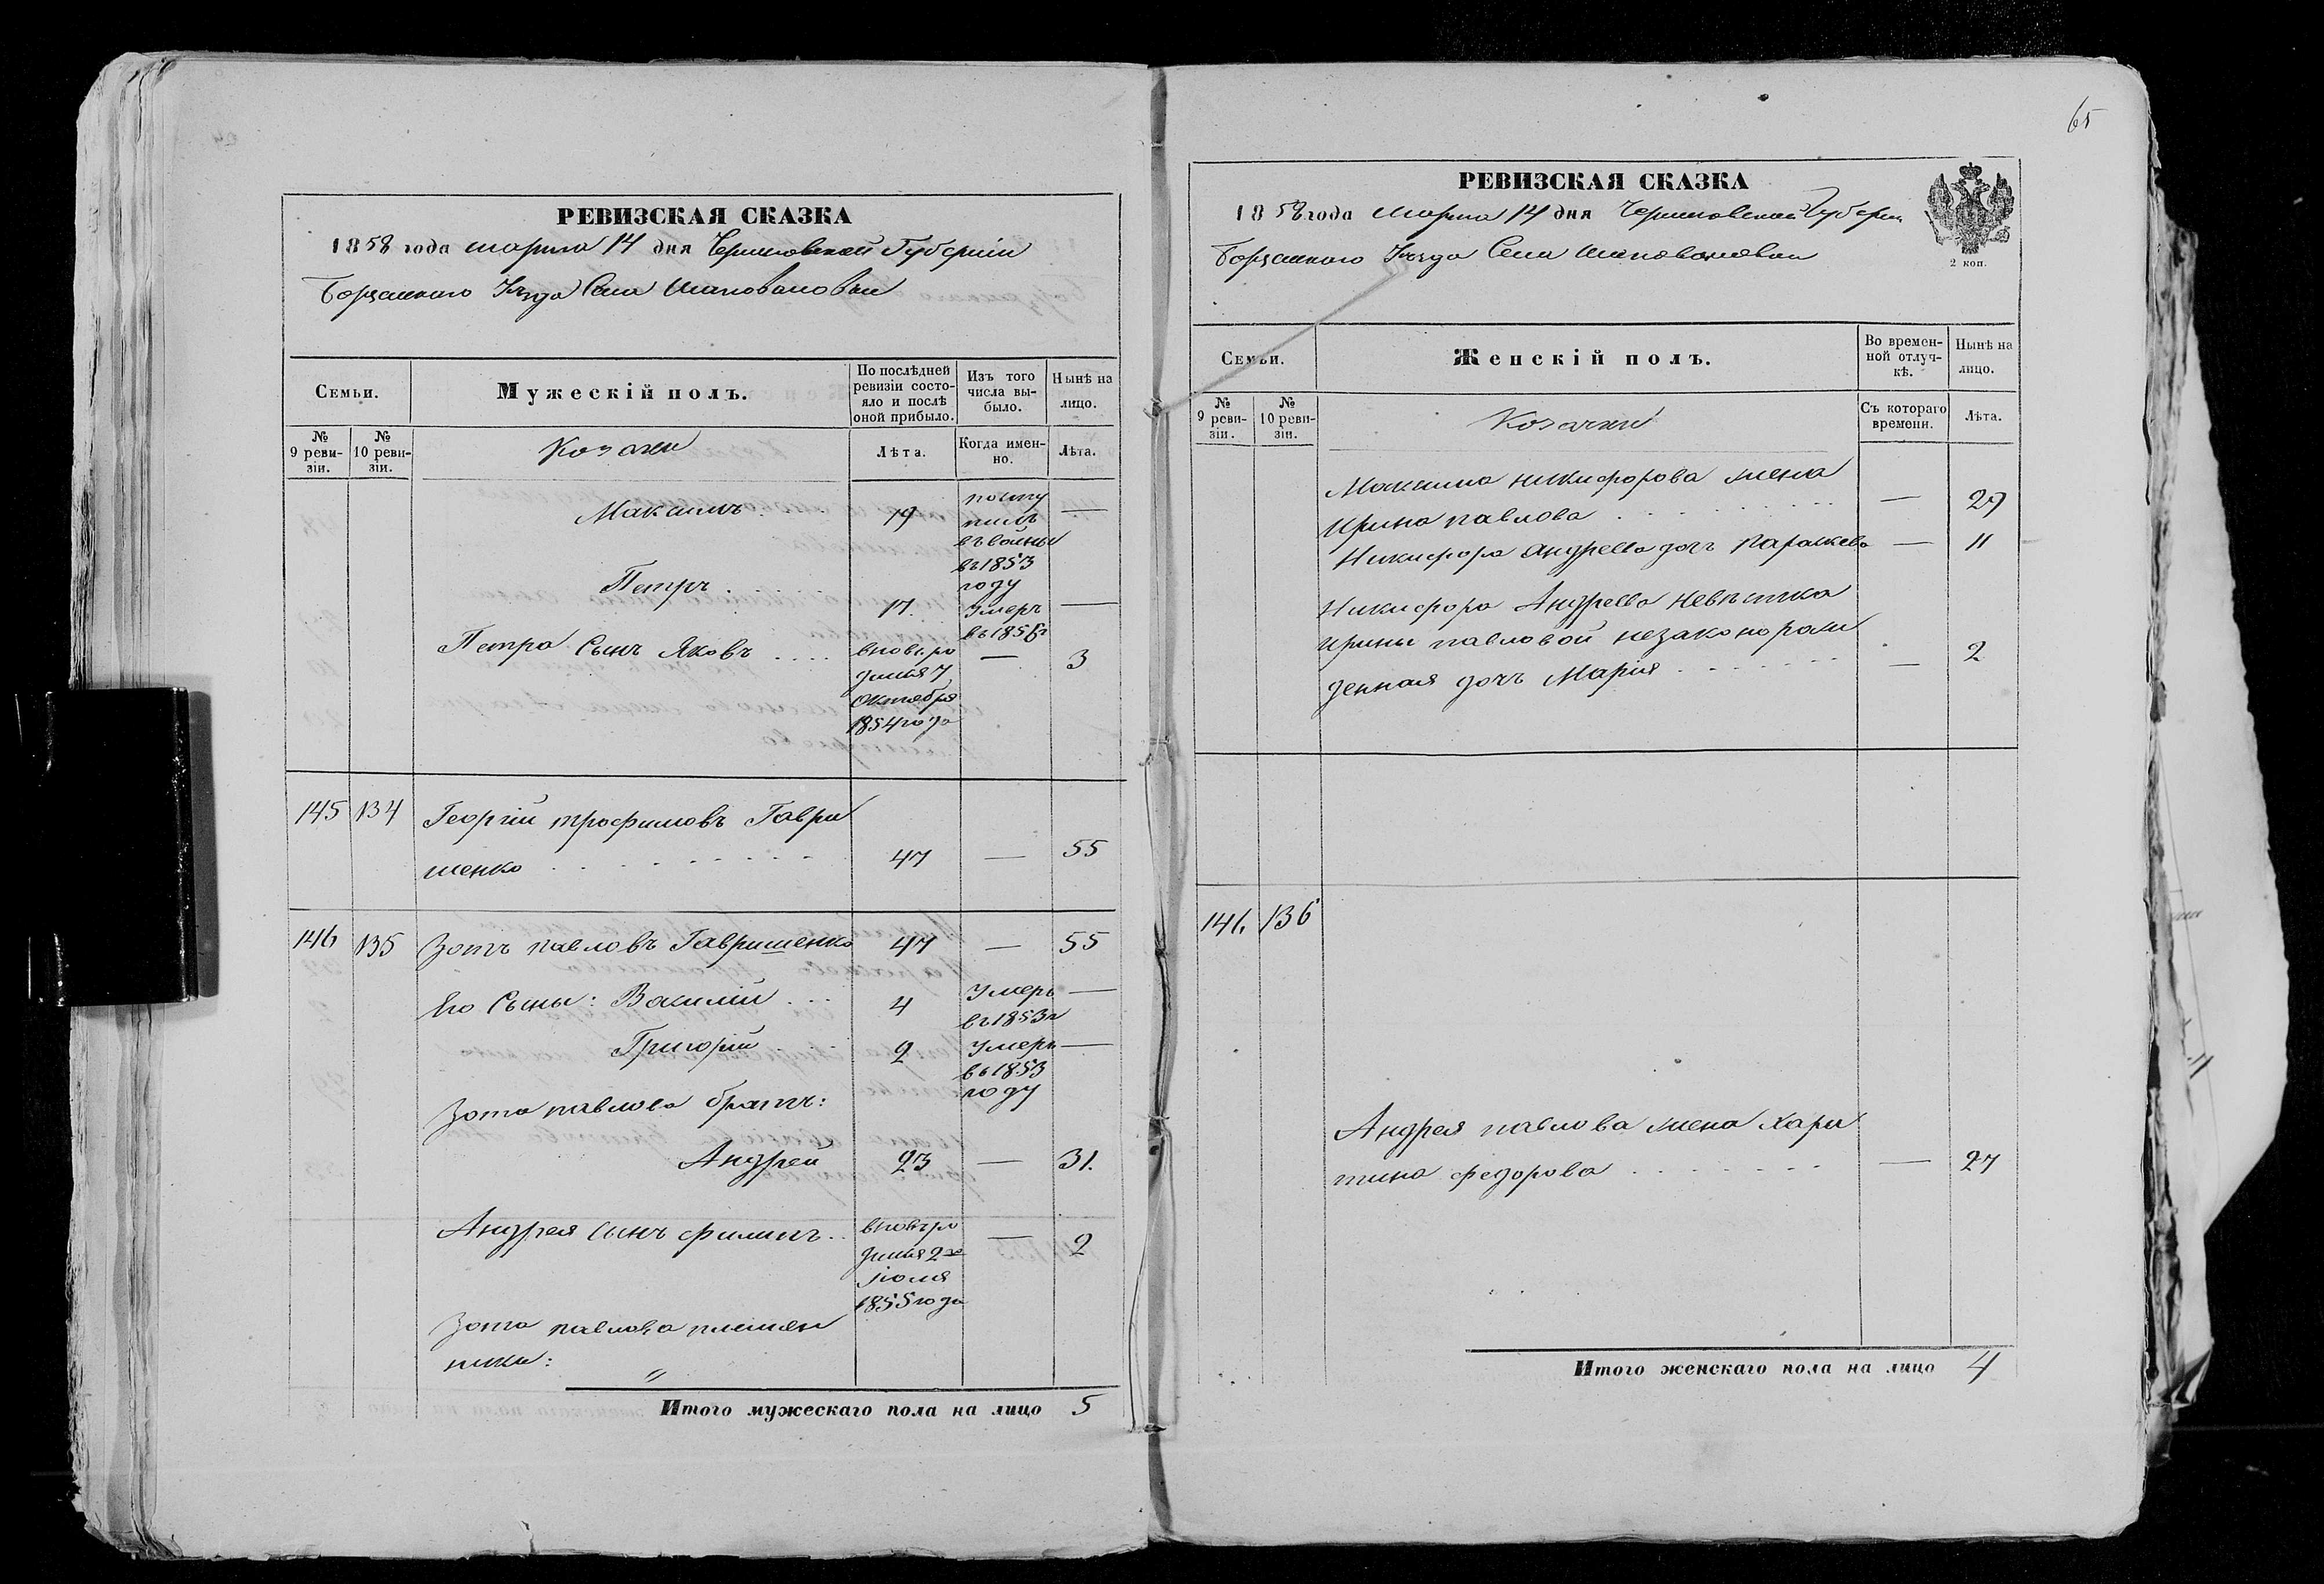 РЕВИЗСКАЯ СКАЗКА
1858 года марта 14 дня Черниговской Губерніи
Борзенского Уезда Села Шаповаловки
Семьи.
Мужескій полъ.
По послѣдней ревизіи состо-
яло и послѣ
оной прибыло.
Изъ того
числа вы-
было.
Нынѣ на
лицо.
№
9 реви-
зіи.
№
10 реви-
зіи.
Козаки
Лѣта.
Когда имен-
но.
Лѣта.
Максимъ . . . 19 —
посту
пилъ
въ 1853
году
Петръ . . . . 17. —
Умеръ
въ 1856г
Петра Сынъ Яковъ . . . . — 3
вновь ро
дился 7
Октября
1854 года
145 134 Георгій Трофимовъ Гаври
шенко . . . . . . . . . . 47 — 55
146 135 Зотъ павловъ Гавришенко 47 — 55
Его Сыны: Василій . . . 4 —
Умеръ
въ 1853г
Григорій . . . 2 —
Умеръ
въ 1853
году
Зота павлова братъ:
Андрей 23 — 31.
Андрея сынъ филипъ . . — 2
вновь ро
дился 2го
1855 года
Зота павлова племян
ники: "
Итого мужескаго пола на лицо 5
65
РЕВИЗСКАЯ СКАЗКА
1858 года Марта 14 дня Черниговской Губерніи
Борзенского Уезда Села Шаповаловки
2 коп.
Семьи.
Женскій полъ.
Во времен-
ной отлуч-
кѣ.
Нынѣ на
лицо.
№
9 реви-
зіи.
№
10 реви-
зіи.
Козачки
Съ котораго
времени.
Лѣта.
Максима никифорова жена
Ирина павлова . . . . . . . . . — 29
Никифора Андреева дочь Параскева — 11
Никифора Андреева невѣстка
Ирины павловой незаконорож
денная дочь Марія . . . . . . . — 2
146. 136
Андрея павлова жена Хари
тина федорова . . . . . . . — 27
Итого женскаго пола на лицо 4